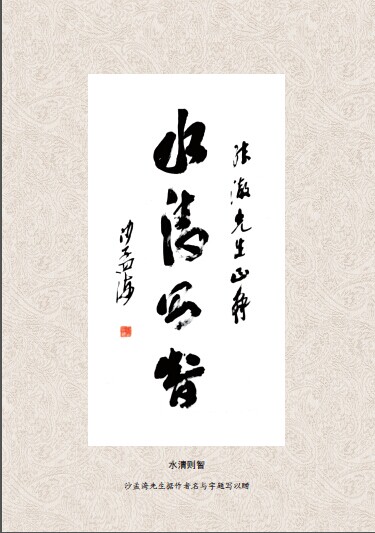 张澂先生正
水清则智
沙孟海
水清则智
沙孟海先生据作者名与字题写以赠